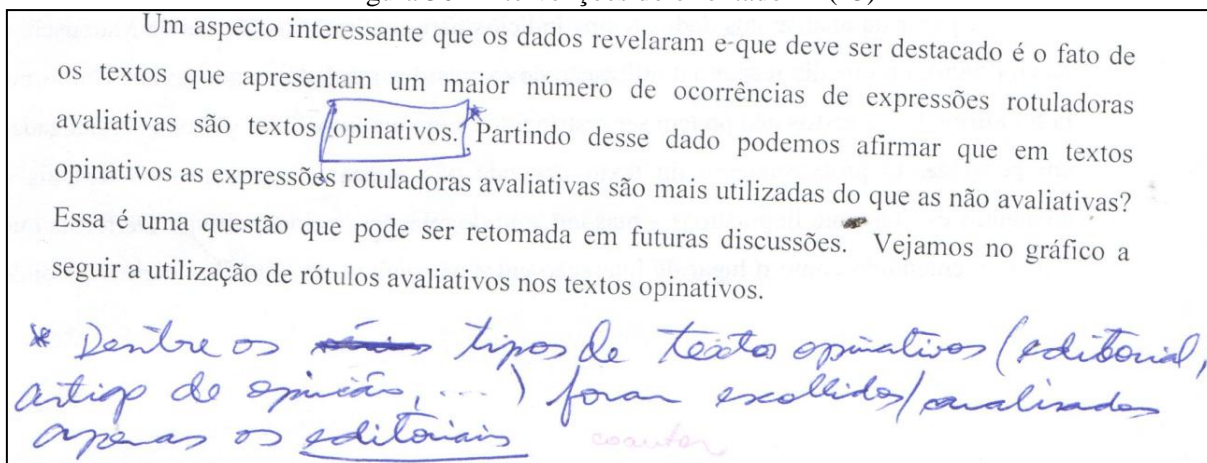 Um aspecto interessante que os dados revelaram e que deve ser destacado é o fato de
os textos que apresentam um maior número de ocorrências de expressões rotuladoras
avaliativas são textos opinativos.* Partindo desse dado podemos afirmar que em textos
opinativos as expressões rotuladoras avaliativas são mais utilizadas do que as não avaliativas?
Essa é uma questão que pode ser retomada em futuras discussões. Vejamos no gráfico a
seguir a utilização de rótulos avaliativos nos textos opinativos.
* Dentre os tipos de textos opinativos (editorial,
artigo de opinião, ...) foram escolhidos/analisados
apenas os editoriais coautor